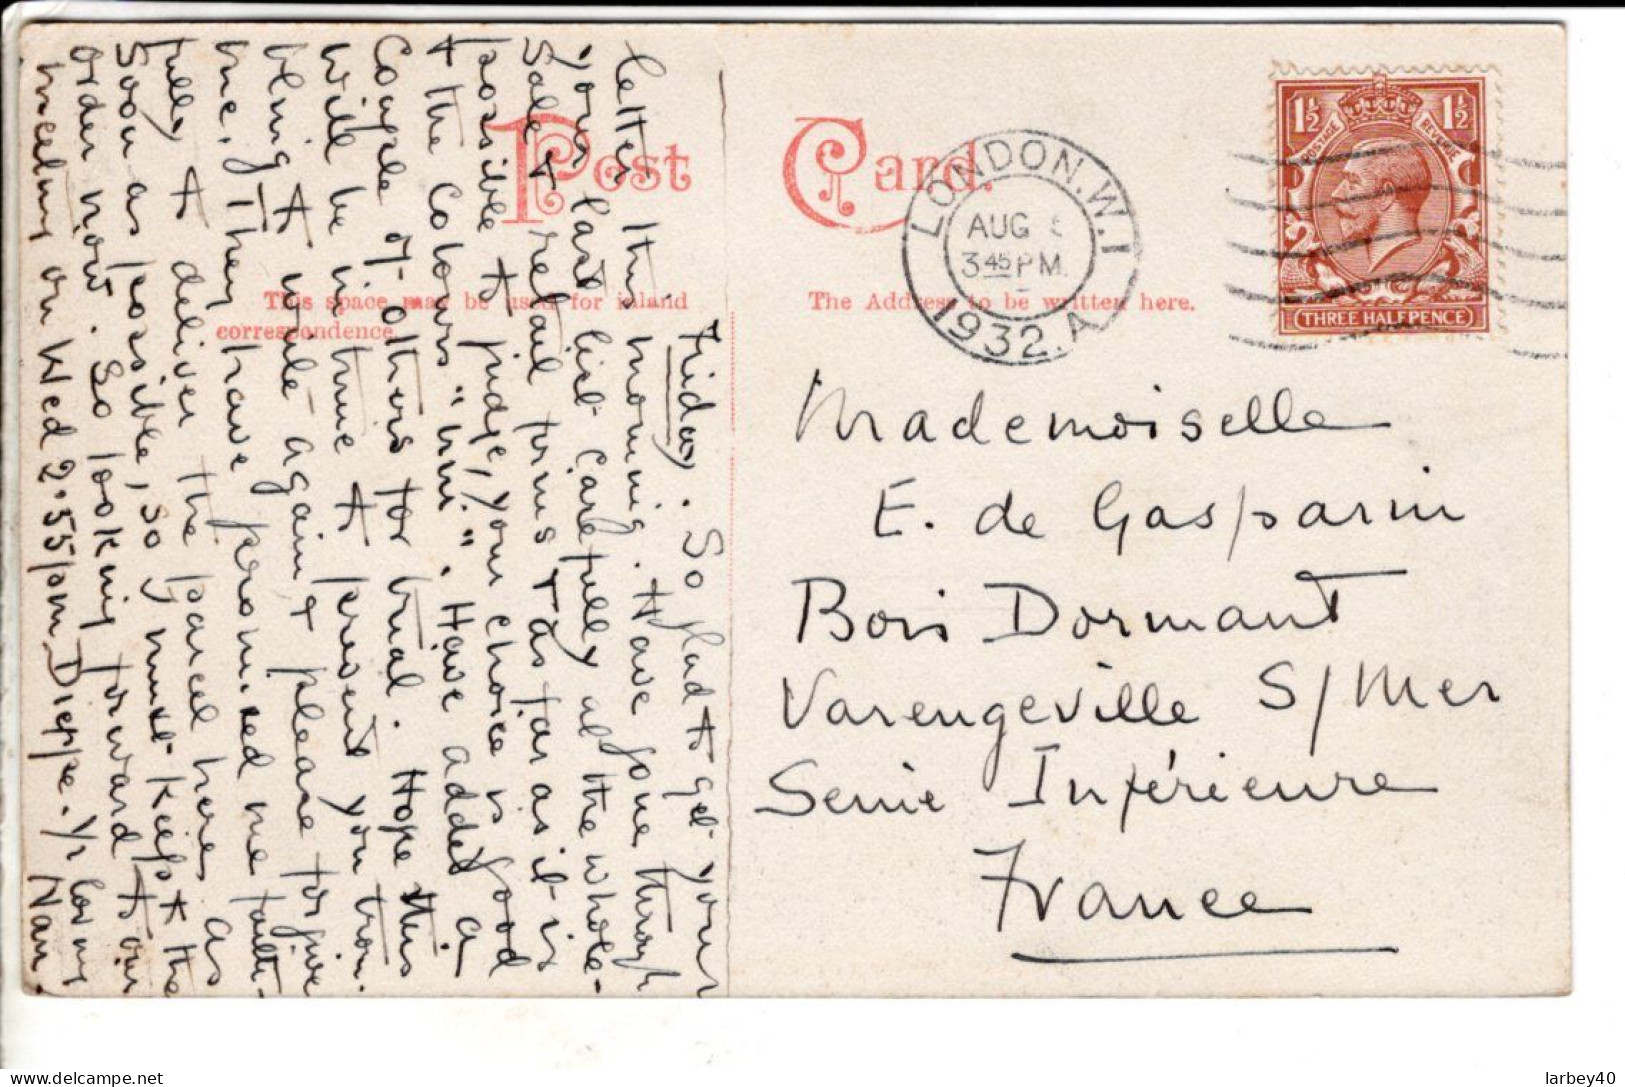 Post Card.
This space may be used for inland
correspondence.
The Address to be written here.
LONDON.W.1
AUG 5
3 45 PM.
1932.A
1½ 1½
POSTAGE REVENUE
THREE HALFPENCE
Mademoiselle
E. de Gasparin
Bois Dormant
Varengeville S/Mer
Seine Inférieure
France
Friday. So glad to get your
letter this morning. Have gone through
your last list carefully at the whole-
sale & retail firms & as far as it is
possible to judge, your choice is good
& the Colours "run". Have added a
Couple of others for trial. Hope this
will be in time to prevent you trou-
bling to write again & please forgive
me. They have promised me faith-
fully to deliver the parcel here as
soon as possible, so I must keep to the
order now. So looking forward to our
meeting on Wed 2.55 pm Dieppe. Yr loving
Nan.
larbey40